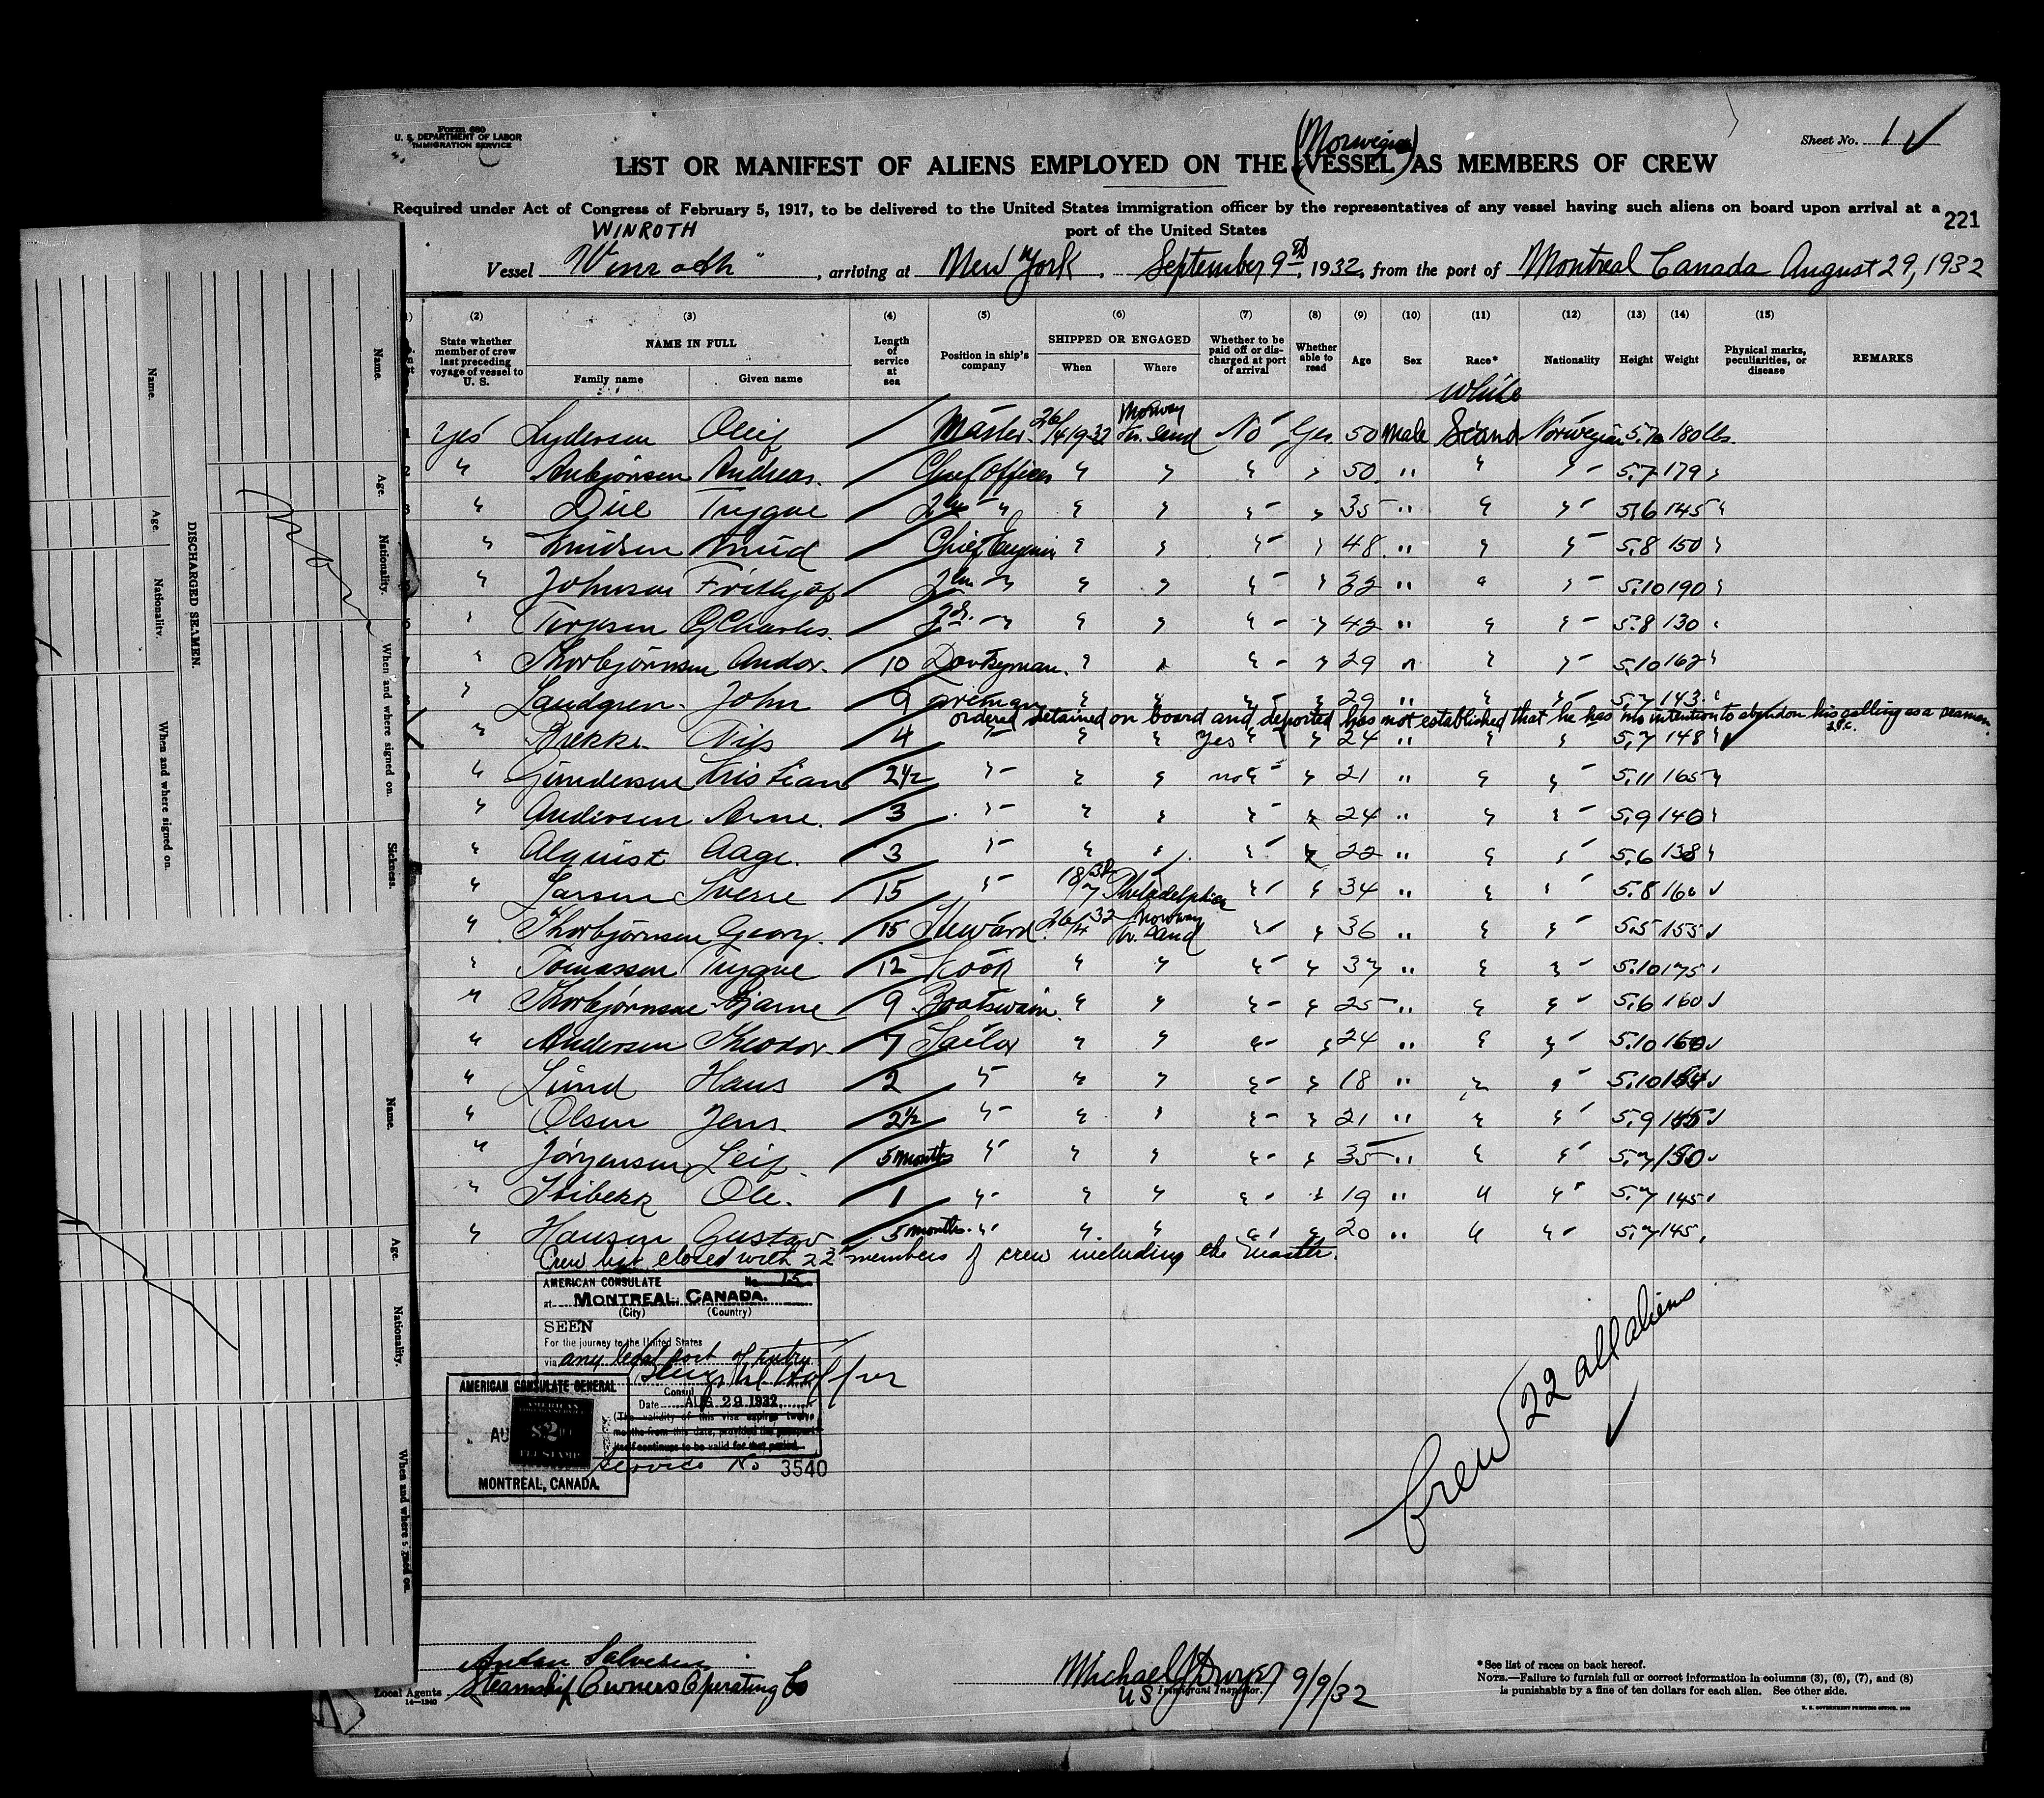 Form 680
U. S. DEPARTMENT OF LABOR
IMMIGRATION SERVICE
Sheet No. 1
(Norwegian)
LIST OR MANIFEST OF ALIENS EMPLOYED ON THE VESSEL AS MEMBERS OF CREW
Required under Act of Congress of February 5, 1917, to be delivered to the United States immigration officer by the representatives of any vessel having such aliens on board upon arrival at a
port of the United States
221
WINROTH
Vessel Winroth, arriving at New York, September 9th, 1932, from the port of Montreal Canada August 29, 1932
(2) (3) (4) (5) (6) (7) (8) (9) (10) (11) (12) (13) (14) (15)
State whether member of crew last preceding voyage of vessel to U. S.
NAME IN FULL
Family name Given name
Length of service at sea
Position in ship's company
SHIPPED OR ENGAGED
When Where
Whether to be paid off or discharged at port of arrival
Whether able to read
Age
Sex
Race*
Nationality
Height
Weight
Physical marks, peculiarities, or disease
REMARKS
White
Norway
1 Yes Lydersen Oleif Master 26/4 1932 Kr. sand No Yes 50 Male Scand Norwegian 5.70 180 lbs.
2 " Anbjørnsen Andreas. Chief Officer " " " " 50 " " " 5.7 179 "
3 " Due Trygve 2en " " " " " 35 " " " 5.6 145 "
" Knudsen Knud Chief Engineer " " " " 48 " " " 5.8 150 "
" Johnsen Frithjof 2en " " " " " 32 " " " 5.10 190 "
" Terjesen Charles. " " " " " 42 " " " 5.8 130 "
" Thorbjørnsen Andor. 10 Donkeyman. " " " " 29 " " " 5.10 162 "
" Landgren John 9 Fireman " " " " 29 " " " 5.7 143 "
ordered detained on board and deported has not established that he has no intention to abandon his calling as a seaman.
" Brekke Nils 4 " " " Yes " 24 " " " 5.7 148 "
" Gundersen Kristian 2½ " " " no " 21 " " " 5.11 165 "
" Andersen Arne. 3 " " " " " 24 " " " 5.9 140 "
" Alquist Aage. 3 " " " " " 22 " " " 5.6 138 "
" Larsen Sverre 15 " 18/7 32 Philadelphia " " 34 " " " 5.8 160 "
" Thorbjørnsen Georg. 15 Steward 26/4 32 Norway Kr. sand " " 36 " " " 5.5 155 "
" Tomassen Trygve 12 Kook " " " " 37 " " " 5.10 175 "
" Thorbjørnsen Bjarne 9 Boatswain. " " " " 25 " " " 5.6 160 "
" Andersen Theodor. 7 Sailor " " " " 24 " " " 5.10 160 "
" Lund Hans 2 " " " " " 18 " " " 5.10 "
" Olsen Jens 2½ " " " " " 21 " " " 5.9 "
" Jørgensen Leif. 5 months " " " " " 35 " " " 5.7 150 "
" Ole. 1 " " " " " 19 " " " 5.7 145 "
" Hansen Gustav 5 months " " " " " 20 " " " 5.7 145 "
Crew list closed with 22 members of crew including the master.
AMERICAN CONSULATE No. 15
at MONTREAL, CANADA.
(City) (Country)
SEEN
For the journey to the United States
via any legal port of entry
Consul
Date AUG 29 1932
(The validity of this visa expires twelve
months from this date, provided the passport
itself continues to be valid for that period.
Service No 3540
AMERICAN CONSULATE GENERAL
AU
AMERICAN
FOREIGN SERVICE
$2
FEE STAMP
MONTREAL, CANADA.
Crew 22 all aliens
Anton Salvesen
Local Agents Steamship Owners Operating Co
14—1240
Michael J Dwyer 9/9/32
US Immigrant Inspector.
*See list of races on back hereof.
NOTE.—Failure to furnish full or correct information in columns (3), (6), (7), and (8)
is punishable by a fine of ten dollars for each alien. See other side.
U. S. GOVERNMENT PRINTING OFFICE
DISCHARGED SEAMEN.
Name. Age. Nationality. When and where signed on.
Name. Age. Nationality. When and where signed on. Sickness.
Name. Age. Nationality. When and where signed on.